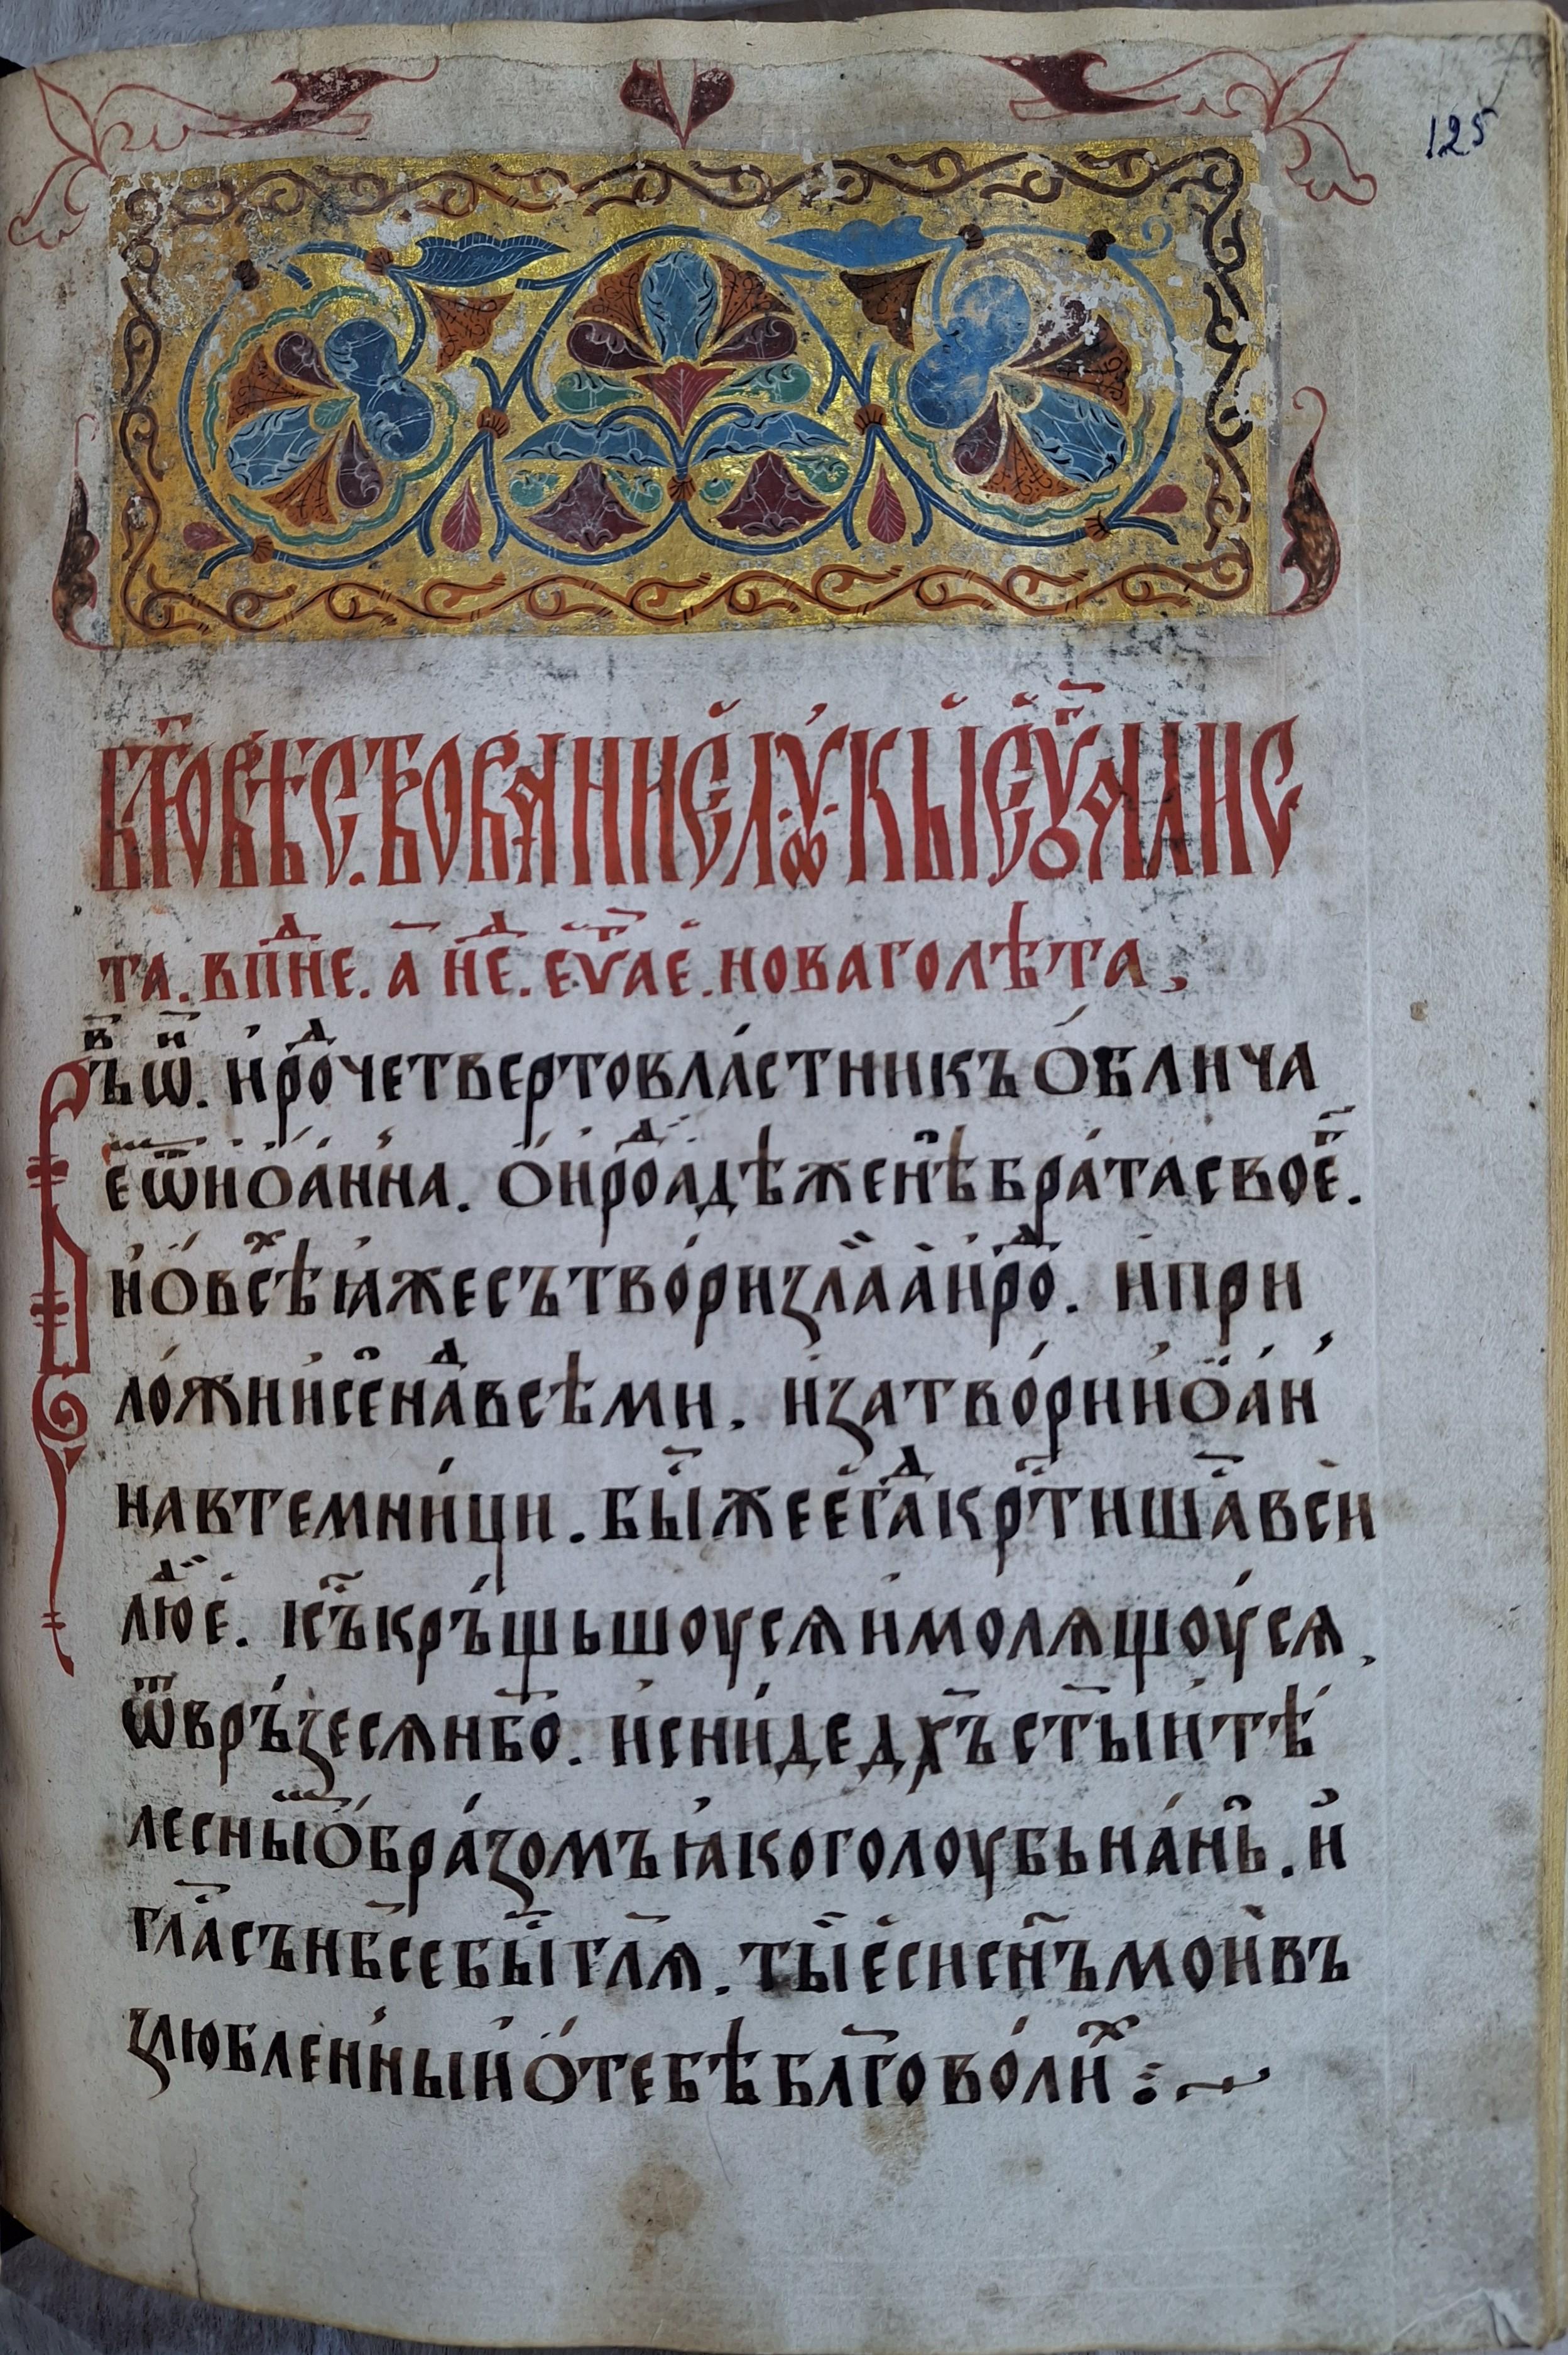 125
бл҃говѣствованиѐ лꙋкы̀ еѵⷢ҇алис
та. в пⷣне. а҃ нⷣе. еѵⷢ҇ае. новаголѣта,
Въⷡ ѡⷩ҇. и҆рⷣо четвертовластникъ ѻ҆блича
еѿ и҆ѻа́нна. ѻ҆ и҆рⷣоадѣженѣбра́тасвоеⷢ.
и҆ѻ҆ всⷯѣꙗ҆жесътво́ризлаа҆ и҆рⷣо. и҆при
ло́жии҆сенаⷣвсѣми. и҆затво́рии҆ѻа́н
на втемни́ци. бы́жеегⷣа кр҃тиша̀вси
люⷣе. і҆с҃ъ кръ́щьшоусѧи҆молѧщоусѧ,
ѿвръ́зесѧнб҃о. и҆сни́дедх҃ъст҃ыи҆тѣ́
лесныⷨѻ҆бра́зомъꙗ҆коголоубьна́нь. и҆
гла́съ нб҃се бы́ гл҃ѧ. ты̀ е҆сисн҃ъмои҆въ
злюбленныи҆ ѻ҆тебѣблг҃овол́иⷯ :~